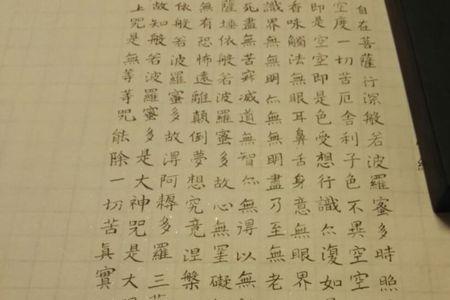 自在菩薩行深般若波羅蜜多時照
空度一切苦厄舍利子色不異空空
即是空空即是色受想行識亦復如
香味觸法無眼耳鼻舌身意無眼界
識界無無明亦無無明盡乃至無老
死盡無苦寂滅道無智亦無得以無
薩埵依般若波羅蜜多故心無罣礙
無有恐怖遠離顛倒夢想究竟涅槃
依般若波羅蜜多故得阿耨多羅三藐
故知般若波羅蜜多是大神咒是大
上咒是無等等咒能除一切苦真實